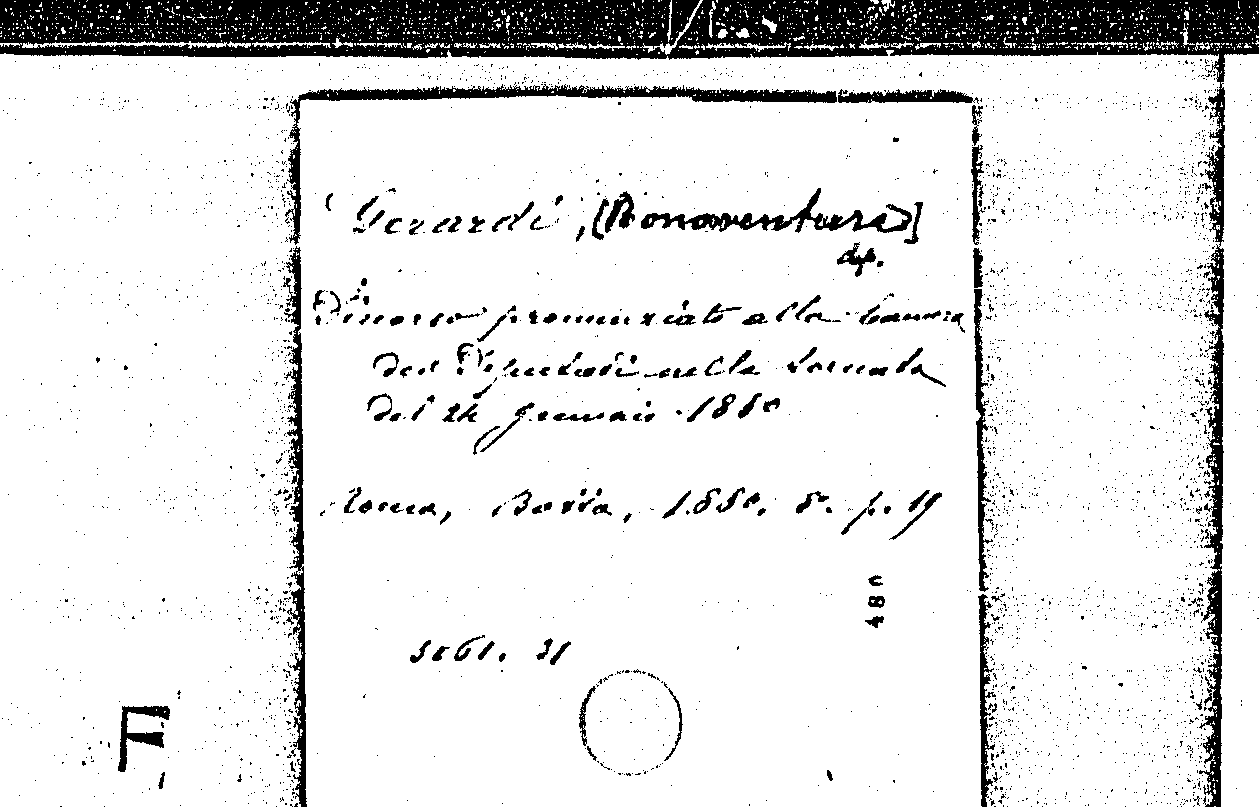 Gerardi, [(Bonaventura)]
dep.
Discorso pronunziato alla Camera
dei Deputati nella tornata
del 24 gennaio 1880
Roma, Botta, 1880. 8º. p. 19
480
3061. 31
F